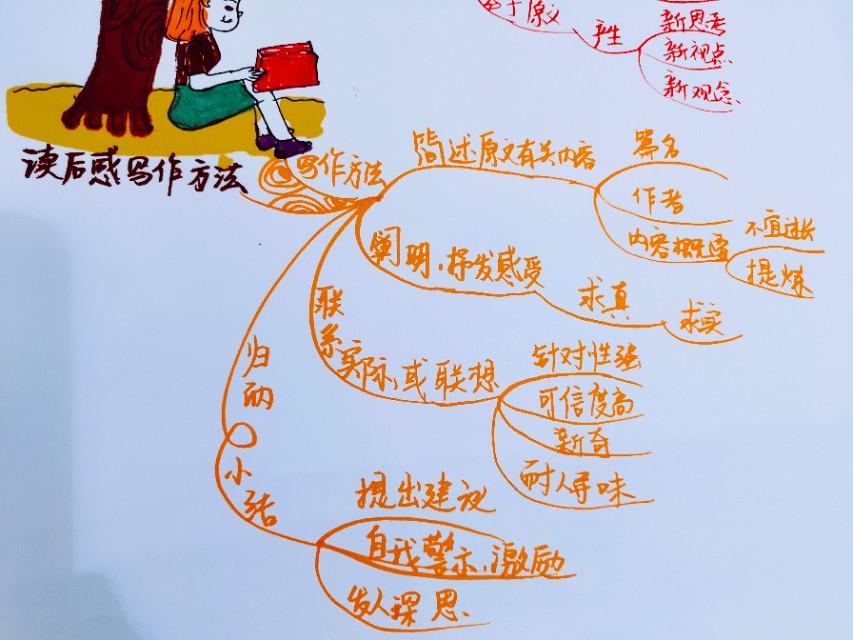 于原文
产生
新思考
新视点
新观念
读后感写作方法
写作方法
简述原文有关内容
名
作者
内容概述
不宜过长
提炼
阐明、抒发感受
求真
求实
联系实际,或联想
针对性强
可信度高
新奇
耐人寻味
归纳小结
提出建议
自我警示、激励
发人深思、